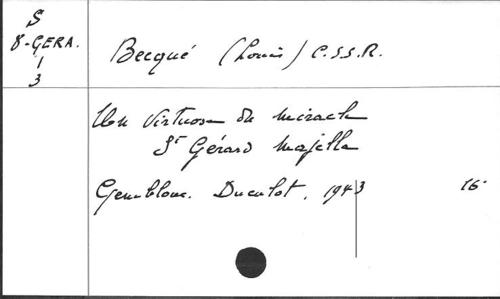 S
8-GERA.
1
3
Becqué (Louis) C.SS.R.
Un virtuose du miracle
St Gérard Majella
Gembloux. Duculot, 1943 16°